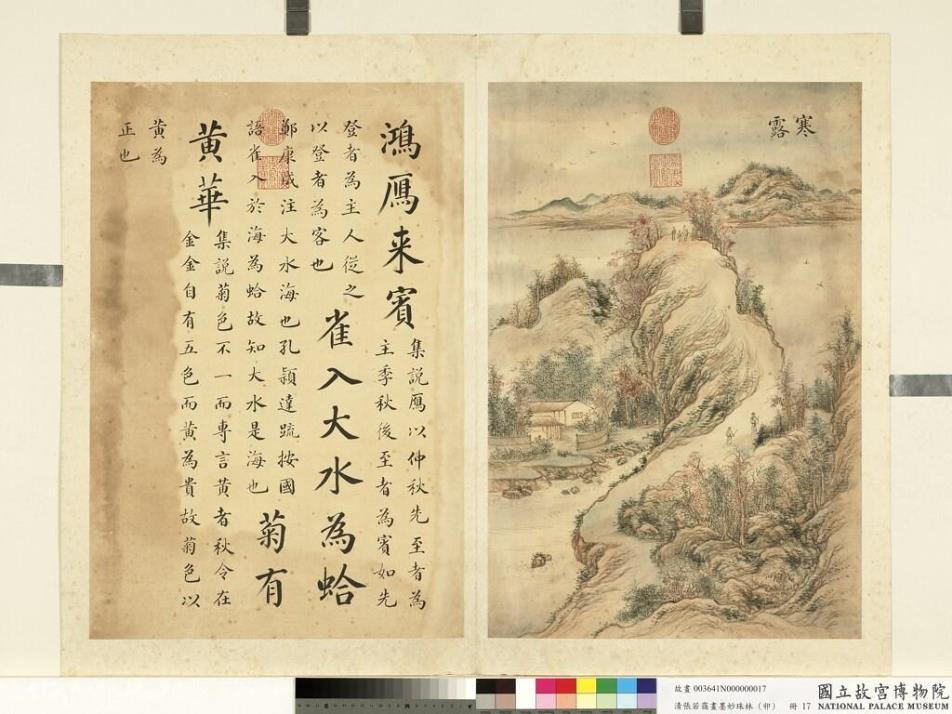 寒露
鴻鴈来賓
集説鴈以仲秋先至者為
主季秋後至者為賓如先
登者為主人從之
以登者為客也
雀入大水為蛤
鄭康成注大水海也孔穎達疏按國
語雀入於海為蛤故知大水是海也
菊有
黄華
集説菊色不一而專言黄者秋令在
金金自有五色而黄為貴故菊色以
黄為
正也
故畫 003641N000000017
清張若靄畫墨妙珠林（卯） 冊 17
國立故宮博物院
NATIONAL PALACE MUSEUM